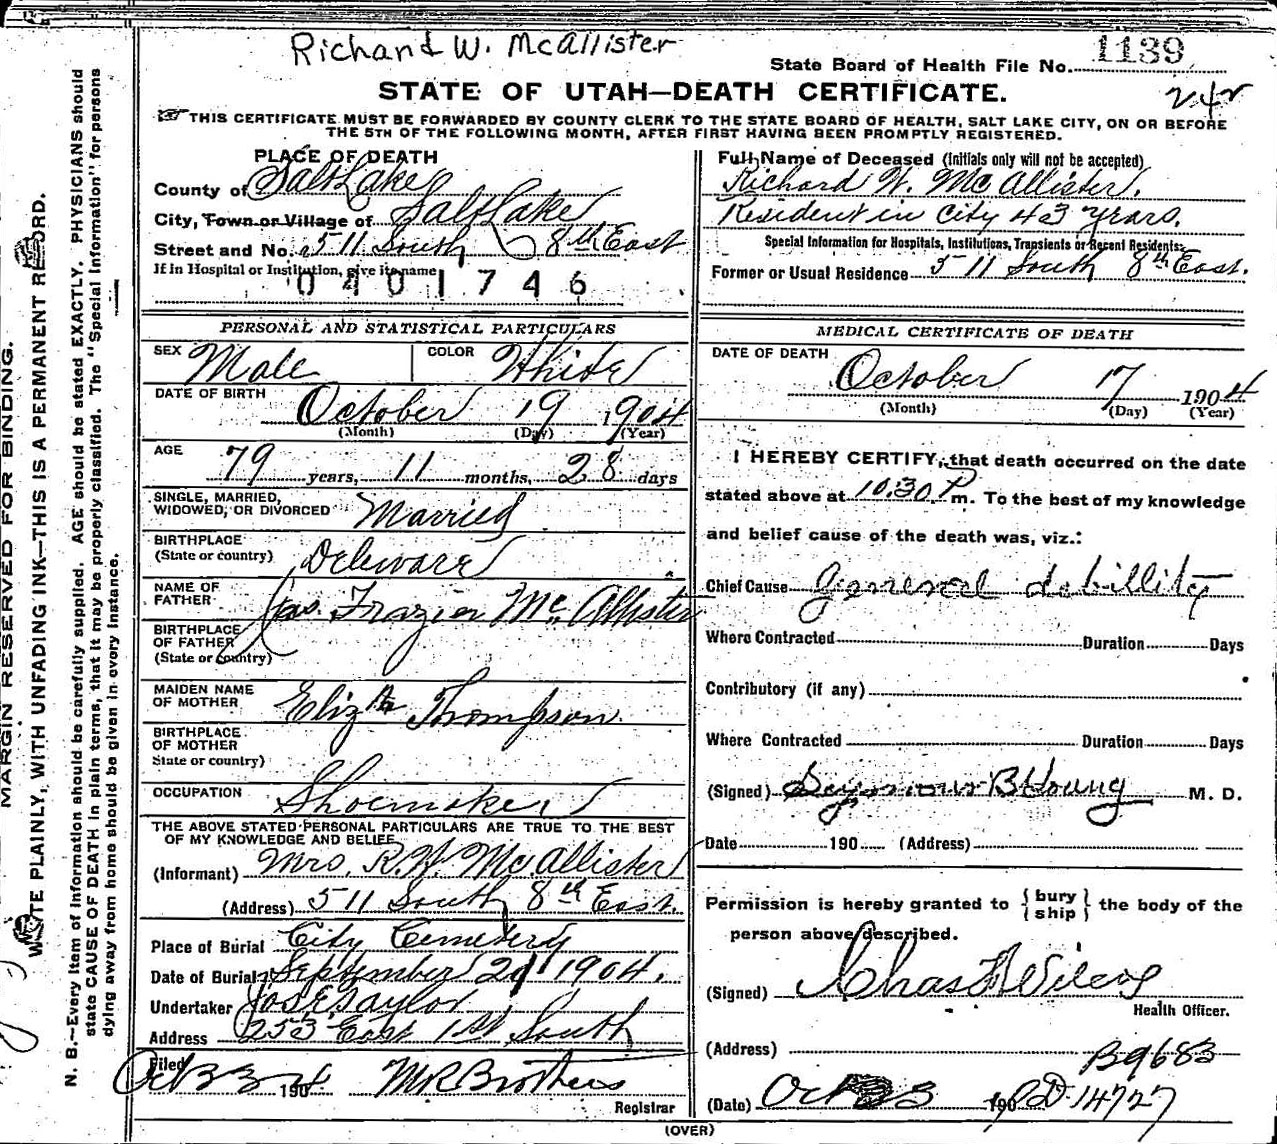 Richard W. McAllister
1139
State Board of Health File No.
STATE OF UTAH—DEATH CERTIFICATE.
242
THIS CERTIFICATE MUST BE FORWARDED BY COUNTY CLERK TO THE STATE BOARD OF HEALTH, SALT LAKE CITY, ON OR BEFORE
THE 5TH OF THE FOLLOWING MONTH, AFTER FIRST HAVING BEEN PROMPTLY REGISTERED.
MARGIN RESERVED FOR BINDING.
WRITE PLAINLY, WITH UNFADING INK—THIS IS A PERMANENT RECORD.
N. B.—Every item of information should be carefully supplied. AGE should be stated EXACTLY. PHYSICIANS should
state CAUSE OF DEATH in plain terms, that it may be properly classified. The "Special Information" for persons
dying away from home should be given in every instance.
PLACE OF DEATH
County of Salt Lake
City, Town or Village of Salt Lake
Street and No. 511 South 8th East
If in Hospital or Institution, give its name
0401746
PERSONAL AND STATISTICAL PARTICULARS
SEX Male COLOR White
DATE OF BIRTH October 19 1904
(Month) (Day) (Year)
AGE 79 years, 11 months, 28 days
SINGLE, MARRIED,
WIDOWED, OR DIVORCED Married
BIRTHPLACE
(State or country) Deleware
NAME OF
FATHER Jas. Frazier McAllister
BIRTHPLACE
OF FATHER
(State or country)
MAIDEN NAME
OF MOTHER Elizth Thompson
BIRTHPLACE
OF MOTHER
State or country)
OCCUPATION Shoemaker
THE ABOVE STATED PERSONAL PARTICULARS ARE TRUE TO THE BEST
OF MY KNOWLEDGE AND BELIEF
(Informant) Mrs. R.W. McAllister
(Address) 511 South 8th East.
Place of Burial City Cemetery
Date of Burial September 21 1904.
Undertaker Jos E Taylor
Address 253 East 1st South
Filed Oct 190
Registrar
Full Name of Deceased (Initials only will not be accepted)
Richard W. McAllister.
Resident in city 43 years.
Special Information for Hospitals, Institutions, Transients or Recent Residents:
Former or Usual Residence 511 South 8th East.
MEDICAL CERTIFICATE OF DEATH
DATE OF DEATH October 17 1904
(Month) (Day) (Year)
I HEREBY CERTIFY, that death occurred on the date
stated above at 10.30 P m. To the best of my knowledge
and belief cause of the death was, viz.:
Chief Cause general debillity
Where Contracted Duration Days
Contributory (if any)
Where Contracted Duration Days
(Signed) Seymour B Young M. D.
Date 190 (Address)
Permission is hereby granted to { bury ship } the body of the
person above described.
(Signed) Chas F Wilcox
Health Officer.
(Address)
B9683
(Date) Oct 23 190 D-14727
(OVER)